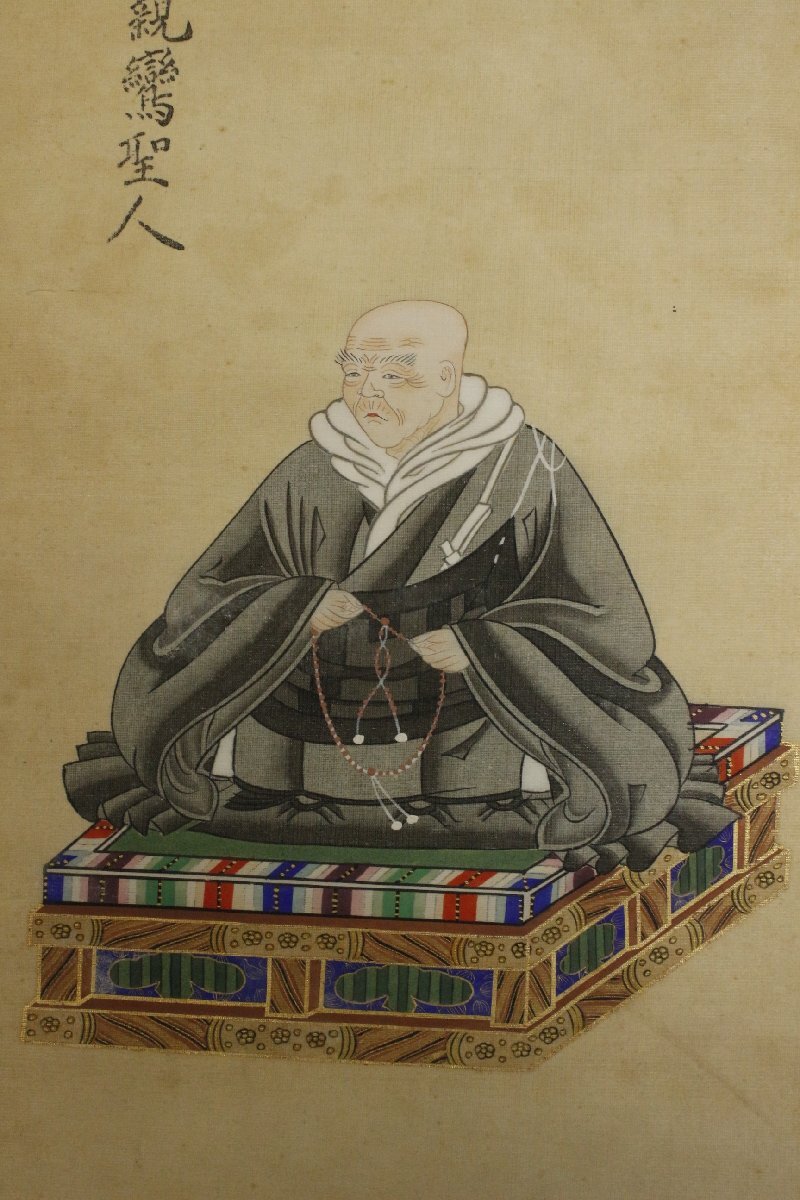 親鸞聖人